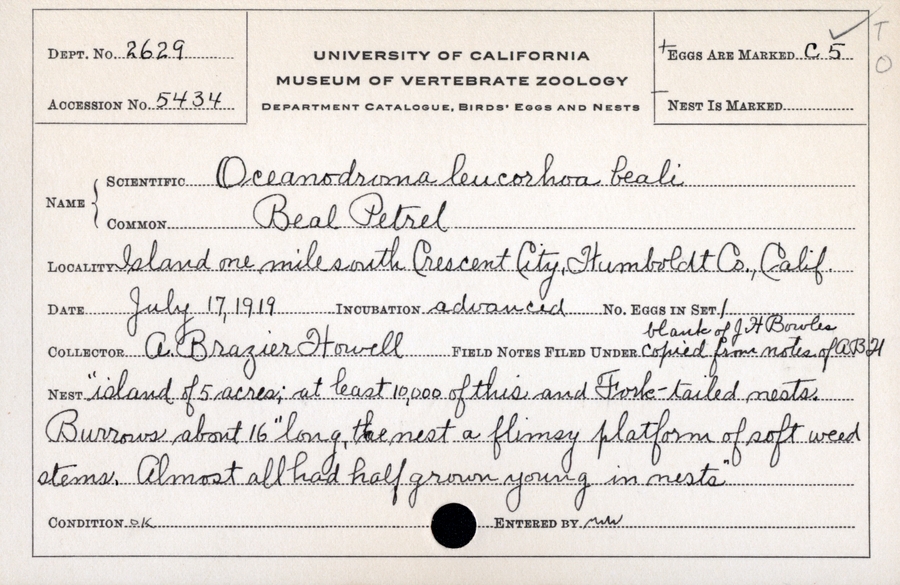 DEPT. No. 2629
ACCESSION No. 5434
UNIVERSITY OF CALIFORNIA
MUSEUM OF VERTEBRATE ZOOLOGY
DEPARTMENT CATALOGUE, BIRDS' EGGS AND NESTS
EGGS ARE MARKED C 5
NEST IS MARKED
T
O
NAME
SCIENTIFIC Oceanodroma leucorhoa beali
COMMON Beal Petrel
LOCALITY Island one mile south Crescent City, Humboldt Co., Calif.
DATE July 17, 1919 INCUBATION advanced No. EGGS IN SET 1
blank of J H Bowles
COLLECTOR A. Brazier Howell FIELD NOTES FILED UNDER copied from notes of A B H
NEST "island of 5 acres; at least 10,000 of this and Fork-tailed nests.
Burrows about 16" long, the nest a flimsy platform of soft weed
stems. Almost all had half grown young in nests"
CONDITION OK ENTERED BY